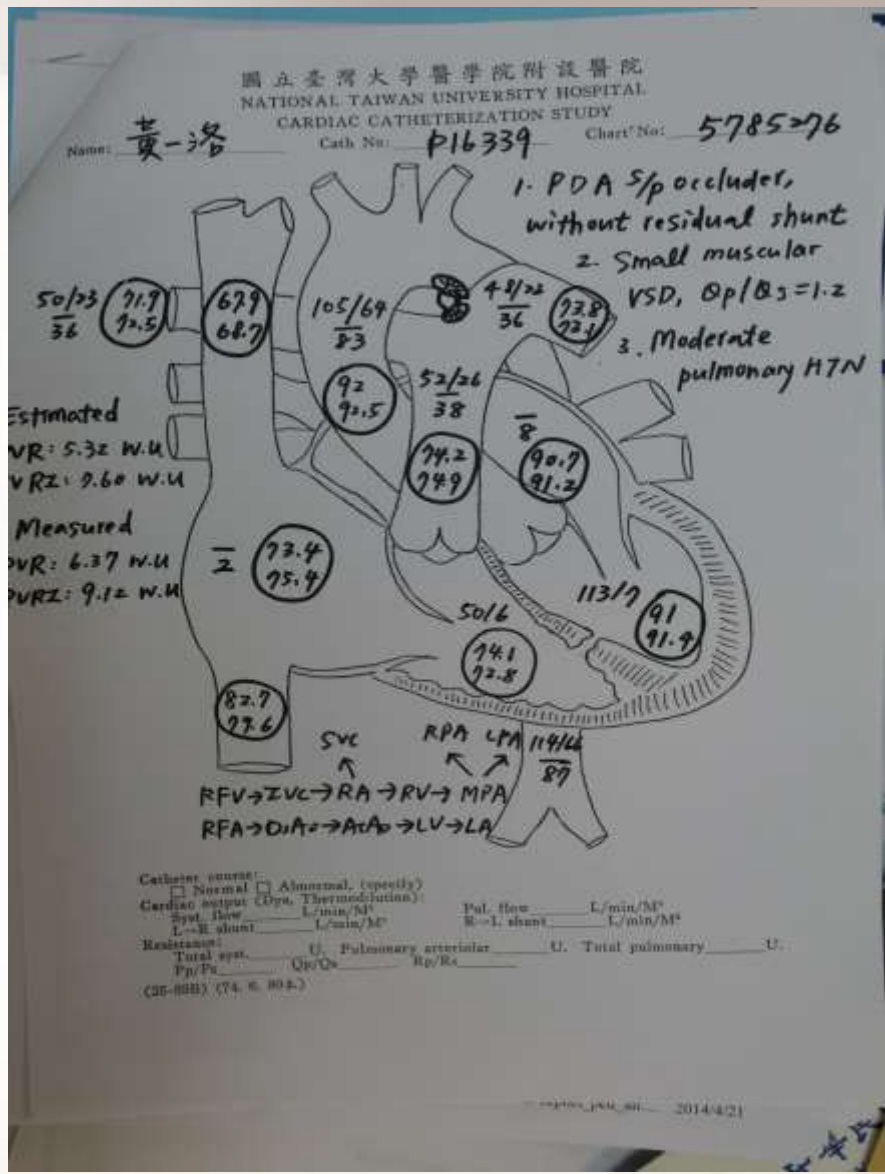 國立臺灣大學醫學院附設醫院
NATIONAL TAIWAN UNIVERSITY HOSPITAL
CARDIAC CATHETERIZATION STUDY
Name: 黃一洛 Cath No: P16339 Chart No: 5785276
1. PDA s/p occluder,
without residual shunt
2. Small muscular
VSD, Qp/Qs=1.2
3. Moderate
pulmonary HTN
50/23
36
71.7
72.5
67.9
68.7
105/64
83
48/22
36
73.8
73.1
92
92.5
52/26
38
8
74.2
74.9
90.7
91.2
Estimated
VR: 5.32 W.U
VRI: 7.60 W.U
Measured
PVR: 6.37 W.U
PVRI: 9.12 W.U
2
73.4
75.4
113/7
91
91.9
50/6
74.1
72.8
82.7
79.6
SVC RPA LPA 114/66
87
RFV→IVC→RA→RV→MPA
RFA→DsAo→AsAo→LV→LA
Catheter course:
□ Normal □ Abnormal, (specify)
Cardiac output (Dye, Thermodilution):
Syst. flow L/min/M² Pul. flow L/min/M²
L→R shunt L/min/M² R→L shunt L/min/M²
Resistance:
Total syst. U. Pulmonary arteriolar U. Total pulmonary U.
Pp/Ps Qp/Qs Rp/Rs
2014/4/21